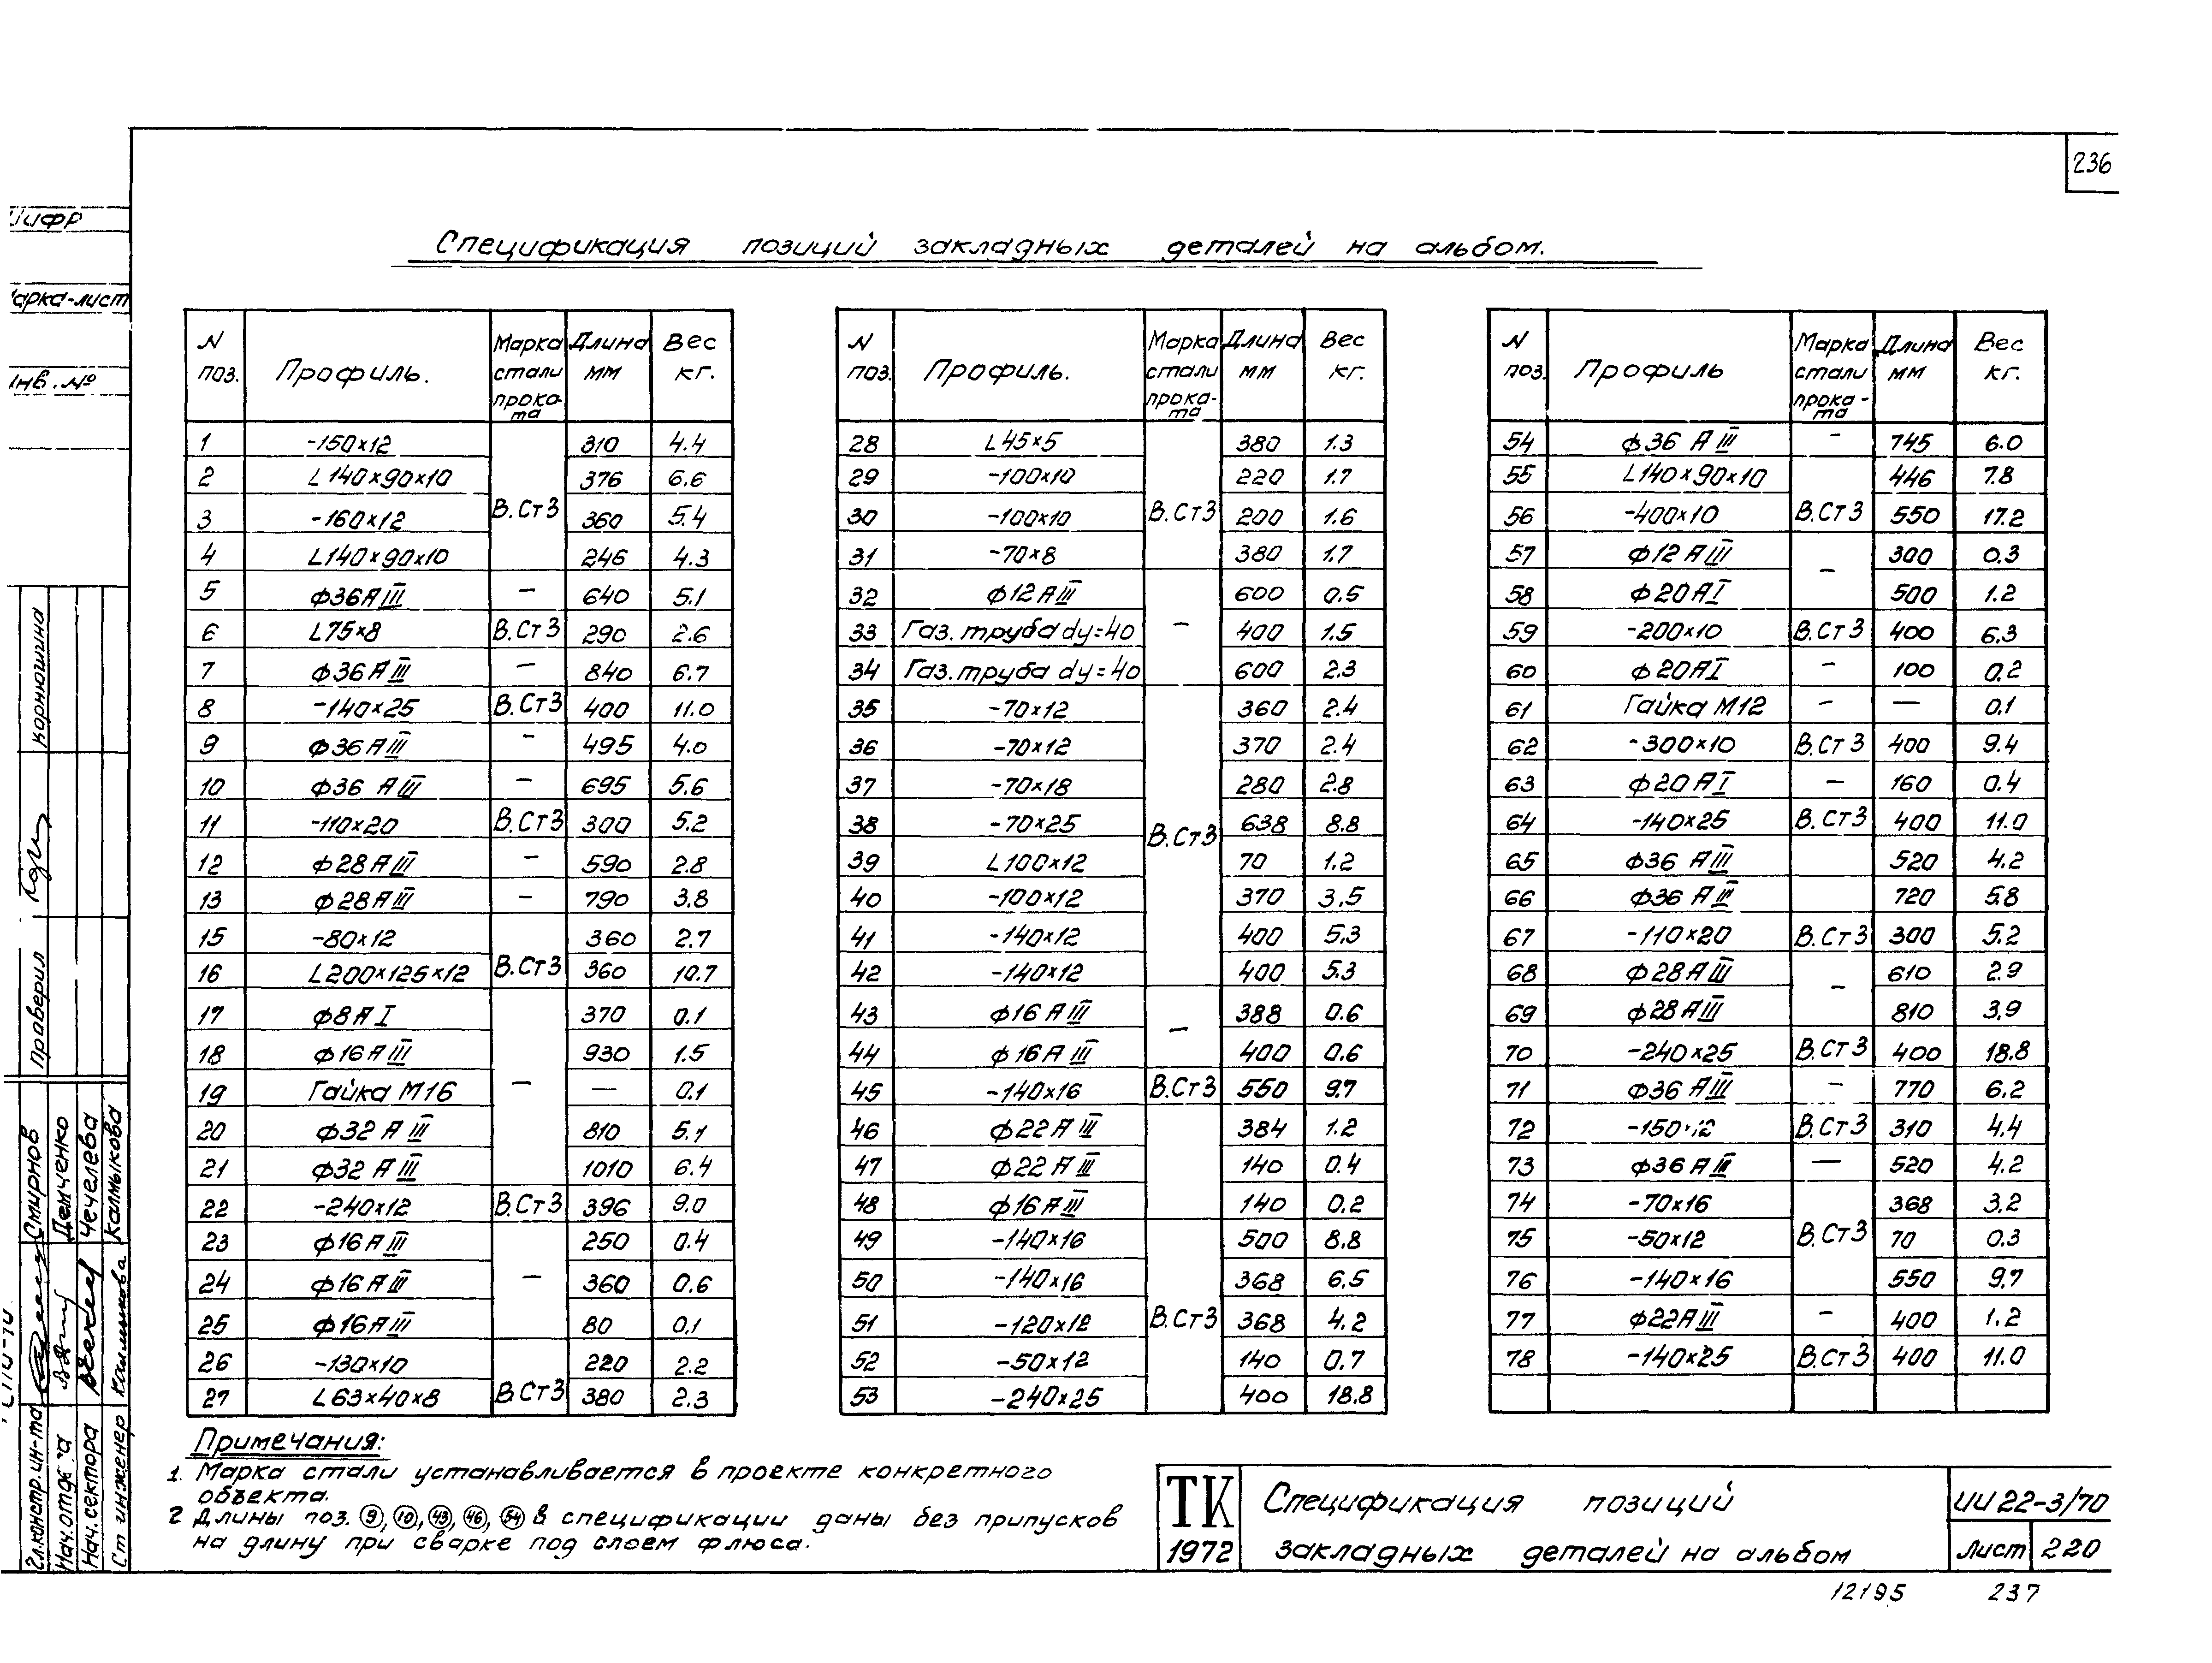 236
Спецификация позиций закладных деталей на альбом.
N поз. Профиль. Марка стали проката Длина мм Вес кг.
1 -150×12 В.Ст3 310 4.4
2 L140×90×10 376 6.6
3 -160×12 360 5.4
4 L140×90×10 246 4.3
5 ф36АIII — 640 5.1
6 L75×8 В.Ст3 290 2.6
7 ф36АIII — 840 6.7
8 -140×25 В.Ст3 400 11.0
9 ф36АIII - 495 4.0
10 ф36 АIII — 695 5.6
11 -110×20 В.Ст3 300 5.2
12 ф28АIII — 590 2.8
13 ф28АIII — 790 3.8
15 -80×12 В.Ст3 360 2.7
16 L200×125×12 360 10.7
17 ф8АI — 370 0.1
18 ф16АIII 930 1.5
19 Гайка М16 — 0.1
20 ф32 АIII 810 5.1
21 ф32 АIII 1010 6.4
22 -240×12 В.Ст3 396 9.0
23 ф16АIII — 250 0.4
24 ф16АIII 360 0.6
25 ф16АIII 80 0.1
26 -130×10 В.Ст3 220 2.2
27 L63×40×8 380 2.3
N поз. Профиль. Марка стали проката Длина мм Вес кг.
28 L45×5 В.Ст3 380 1.3
29 -100×10 220 1.7
30 -100×10 200 1.6
31 -70×8 380 1.7
32 ф12АIII — 600 0.5
33 Газ. труба dy=40 400 1.5
34 Газ. труба dy=40 600 2.3
35 -70×12 В.Ст3 360 2.4
36 -70×12 370 2.4
37 -70×18 280 2.8
38 -70×25 638 8.8
39 L100×12 70 1.2
40 -100×12 370 3.5
41 -140×12 400 5.3
42 -140×12 400 5.3
43 ф16АIII — 388 0.6
44 ф16АIII 400 0.6
45 -140×16 В.Ст3 550 9.7
46 ф22АIII 384 1.2
47 ф22АIII 140 0.4
48 ф16АIII 140 0.2
49 -140×16 В.Ст3 500 8.8
50 -140×16 368 6.5
51 -120×12 368 4.2
52 -50×12 140 0.7
53 -240×25 400 18.8
N поз. Профиль Марка стали проката Длина мм Вес кг.
54 ф36 АIII — 745 6.0
55 L140×90×10 В.Ст3 446 7.8
56 -400×10 550 17.2
57 ф12АIII — 300 0.3
58 ф20АI 500 1.2
59 -200×10 В.Ст3 400 6.3
60 ф20АI — 100 0.2
61 Гайка М12 — — 0.1
62 -300×10 В.Ст3 400 9.4
63 ф20АI — 160 0.4
64 -140×25 В.Ст3 400 11.0
65 ф36 АIII 520 4.2
66 ф36 АIII 720 5.8
67 -110×20 В.Ст3 300 5.2
68 ф28АIII — 610 2.9
69 ф28АIII 810 3.9
70 -240×25 В.Ст3 400 18.8
71 ф36 АIII — 770 6.2
72 -150×12 В.Ст3 310 4.4
73 ф36АIII — 520 4.2
74 -70×16 В.Ст3 368 3.2
75 -50×12 70 0.3
76 -140×16 550 9.7
77 ф22АIII — 400 1.2
78 -140×25 В.Ст3 400 11.0
Примечания:
1. Марка стали устанавливается в проекте конкретного
объекта.
2 Длины поз. 9, 10, 43, 46, 54 в спецификации даны без припусков
на длину при сварке под слоем флюса.
ТК
1972
Спецификация позиций
закладных деталей на альбом
ИИ 22-3/70
Лист 220
12195 237
Инв. №
Гл.констр.ин-та Смирнов
Нач.отдела Демченко
Нач.сектора Чечелева
Ст.инженер Калмыкова
Проверил Корнюшина